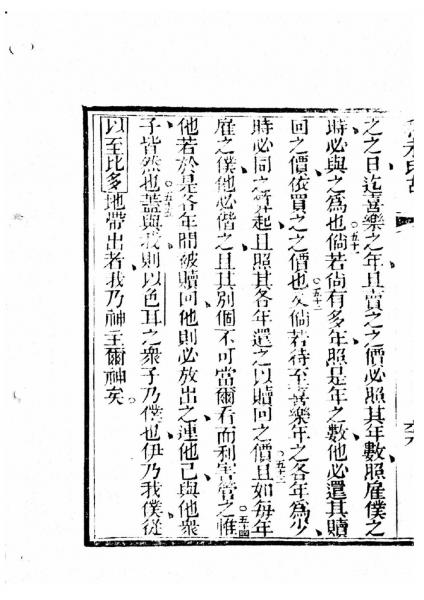 之之日迄喜樂之年且賣之之價必照其年數照雇僕之
時必與之為也五十一倘若尙有多年照是年之數他必還其贖
回之價依買之之價也五十二又倘若待至喜樂年之各年為少
時必同之算起且照其各年還之以贖回之價五十三且如每年
雇之僕他必偕之且其別個不可當爾看而利害管之五十四惟
他若於是各年間被贖回他則必放出之連他己與他衆
子皆然也五十五蓋與我則以色耳之衆子乃僕也伊乃我僕從
以至比多地帶出者我乃神主爾神矣